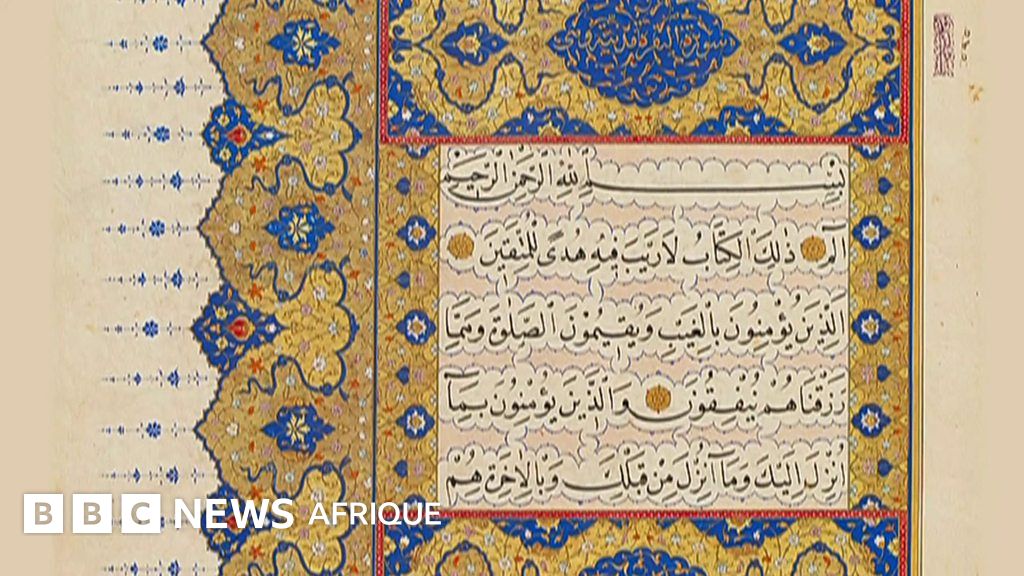 سورة البقرة مدنية وهى
بِسْمِ اللّٰهِ الرَّحْمٰنِ الرَّحِيمِ
الٓمٓ ذٰلِكَ الْكِتَابُ لَا رَيْبَ فِيهِ هُدًى لِلْمُتَّقِينَ
اَلَّذِينَ يُؤْمِنُونَ بِالْغَيْبِ وَيُقِيمُونَ الصَّلٰوةَ وَمِمَّا
رَزَقْنَاهُمْ يُنْفِقُونَ وَالَّذِينَ يُؤْمِنُونَ بِمَآ
اُنْزِلَ اِلَيْكَ وَمَآ اُنْزِلَ مِنْ قَبْلِكَ وَبِالْاٰخِرَةِ هُمْ
BBC NEWS AFRIQUE